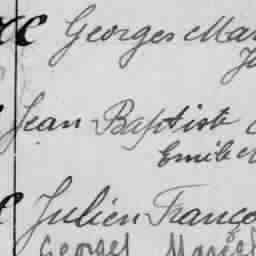 Georges Mar
Jean Baptiste
Emile
Julien Franço
Georges Marcel